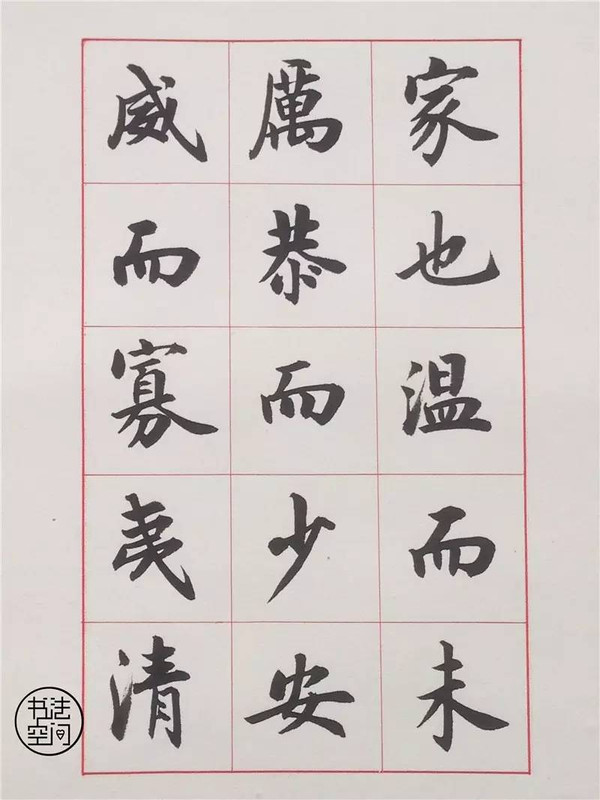 家也温而未
厲恭而少安
威而寡夷清
书法空间